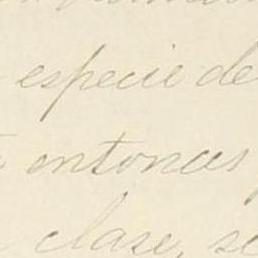 especie de
entonces
clase, se